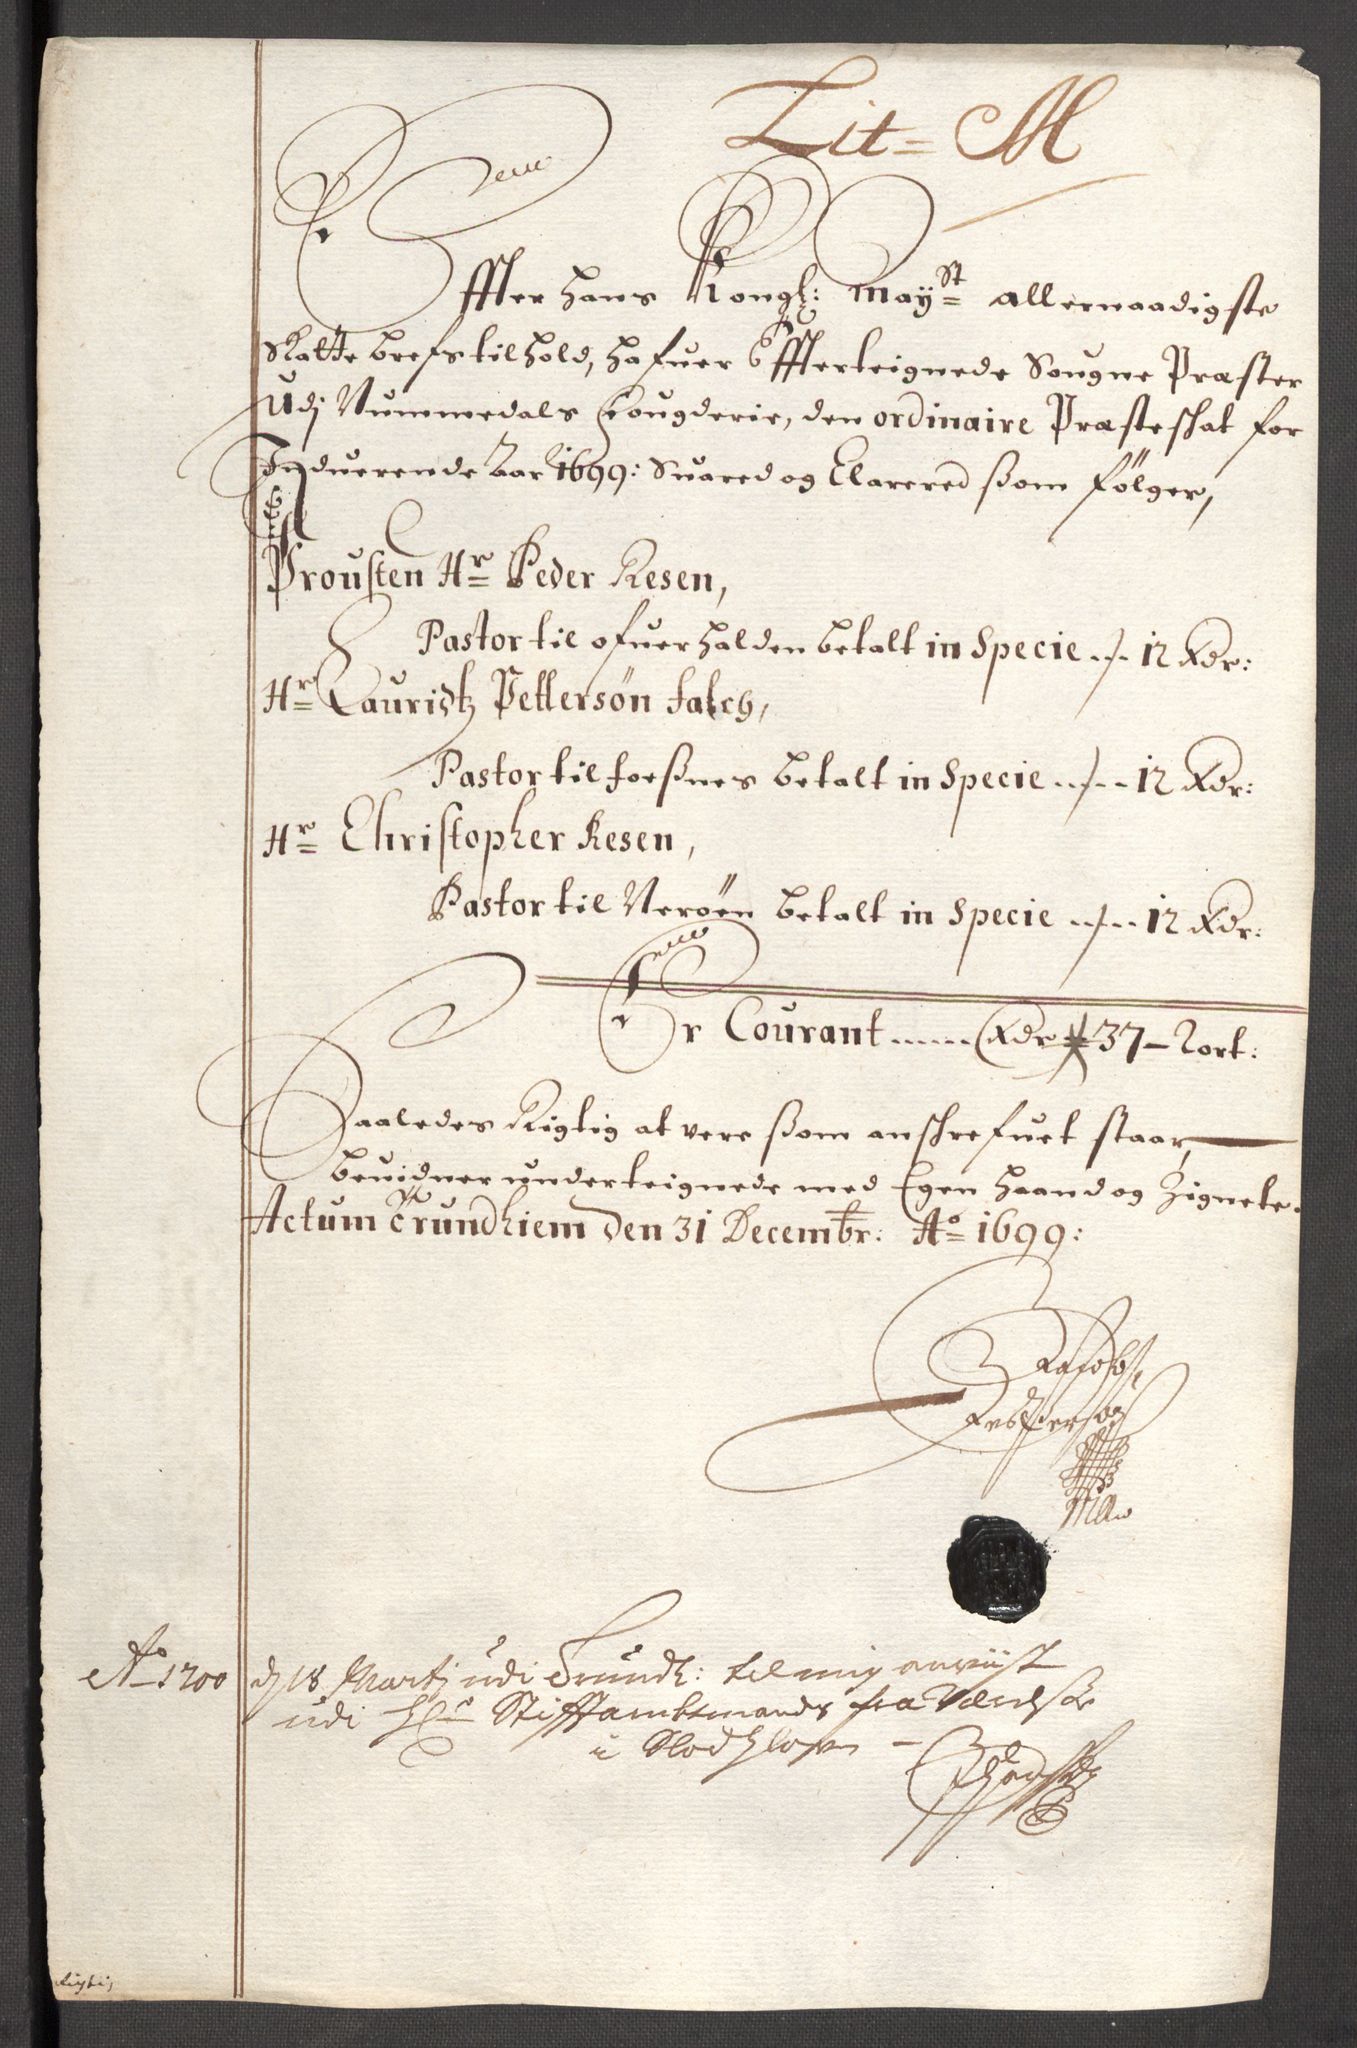 Lit= M
Effter hans Kongl: Mayst allernaadigste
Skatte brefs tilhold, hafuer Effterteignede Sougne Præster
Udj Nummedals fougderie, den ordinaire Præsteskat for
Induerende Aar 1699: Suared og Clarered ßom følger,
Prousten Hr Peder Resen,
Pastor til ofuerhalden betalt in Specie ../.. 12 Rdr:
Hr Lauridtz Pettersøn falch,
Pastor til foeßnes betalt in Specie ../.. 12 Rdr:
Hr Christopher Resen,
Pastor til Nerøen betalt in Specie ../.. 12 Rdr:
Er Courant ...... Rdr 37 – 2 ort:
Saaledes Rigtig at vere ßom anskrefuet staar,
beuidner underteignede med Egen haand og Zignete.
Actum Trundhiem den 31 Decembr: Ao 1699:
Ao 1700 d 18 Martj udi Trundh: til mig anvist
udi Hr Stifftambtmands fra